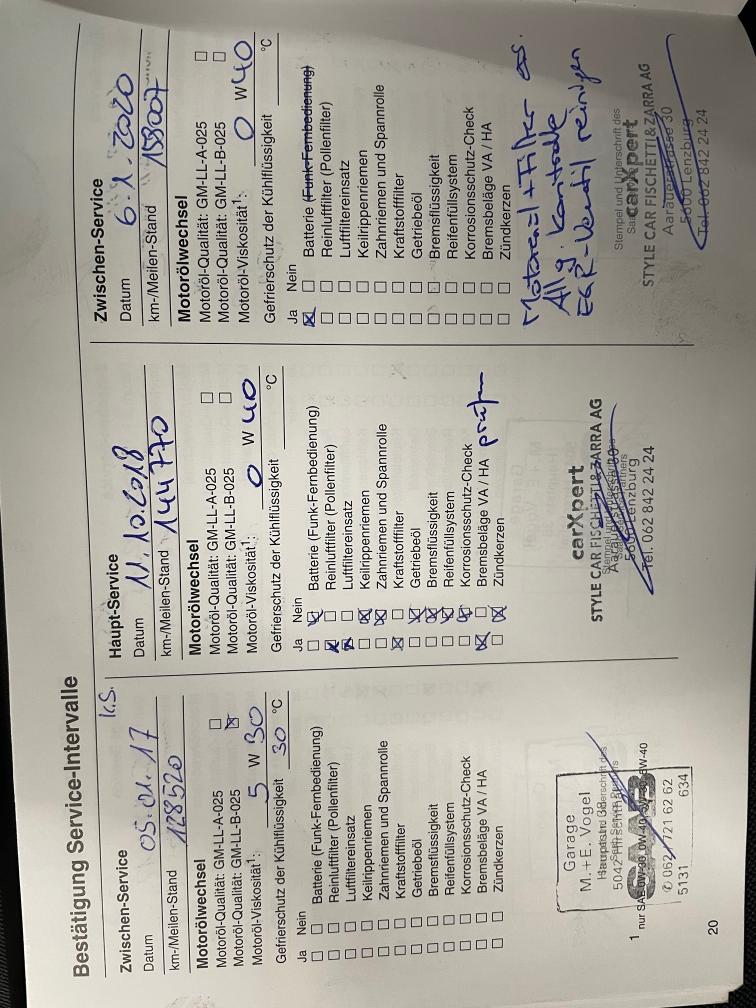 Bestätigung Service-Intervalle
Zwischen-Service K.S.
Datum 05.01.17
km-/Meilen-Stand 128520
Motorölwechsel
Motoröl-Qualität: GM-LL-A-025
Motoröl-Qualität: GM-LL-B-025
Motoröl-Viskosität¹: 5 W 30
Gefrierschutz der Kühlflüssigkeit 30 °C
Ja Nein
Batterie (Funk-Fernbedienung)
Reinluftfilter (Pollenfilter)
Luftfiltereinsatz
Keilrippenriemen
Zahnriemen und Spannrolle
Kraftstofffilter
Getriebeöl
Bremsflüssigkeit
Reifenfüllsystem
Korrosionsschutz-Check
Bremsbeläge VA / HA
Zündkerzen
Garage
M.+E. Vogel
Hauptstr. 38
5042 Hirschthal
062 721 62 62
5131 634
Haupt-Service
Datum 11.10.2018
km-/Meilen-Stand 144770
Motorölwechsel
Motoröl-Qualität: GM-LL-A-025
Motoröl-Qualität: GM-LL-B-025
Motoröl-Viskosität¹: 0 W 40
Gefrierschutz der Kühlflüssigkeit °C
Ja Nein
Batterie (Funk-Fernbedienung)
Reinluftfilter (Pollenfilter)
Luftfiltereinsatz
Keilrippenriemen
Zahnriemen und Spannrolle
Kraftstofffilter
Getriebeöl
Bremsflüssigkeit
Reifenfüllsystem
Korrosionsschutz-Check
Bremsbeläge VA / HA prüfen
Zündkerzen
carXpert
STYLE CAR FISCHETTI & ZARRA AG
Aarauerstrasse 30
5600 Lenzburg
Tel. 062 842 24 24
Zwischen-Service
Datum 6.1.2020
km-/Meilen-Stand 158007
Motorölwechsel
Motoröl-Qualität: GM-LL-A-025
Motoröl-Qualität: GM-LL-B-025
Motoröl-Viskosität¹: 0 W 40
Gefrierschutz der Kühlflüssigkeit °C
Ja Nein
Batterie (Funk-Fernbedienung)
Reinluftfilter (Pollenfilter)
Luftfiltereinsatz
Keilrippenriemen
Zahnriemen und Spannrolle
Kraftstofffilter
Getriebeöl
Bremsflüssigkeit
Reifenfüllsystem
Korrosionsschutz-Check
Bremsbeläge VA / HA
Zündkerzen
Motorenöl + Filter ers.
Allg. Kontrolle
EGR-Ventil reinigen
Stempel und Unterschrift des
carXpert
STYLE CAR FISCHETTI & ZARRA AG
Aarauerstrasse 30
5600 Lenzburg
Tel. 062 842 24 24
20